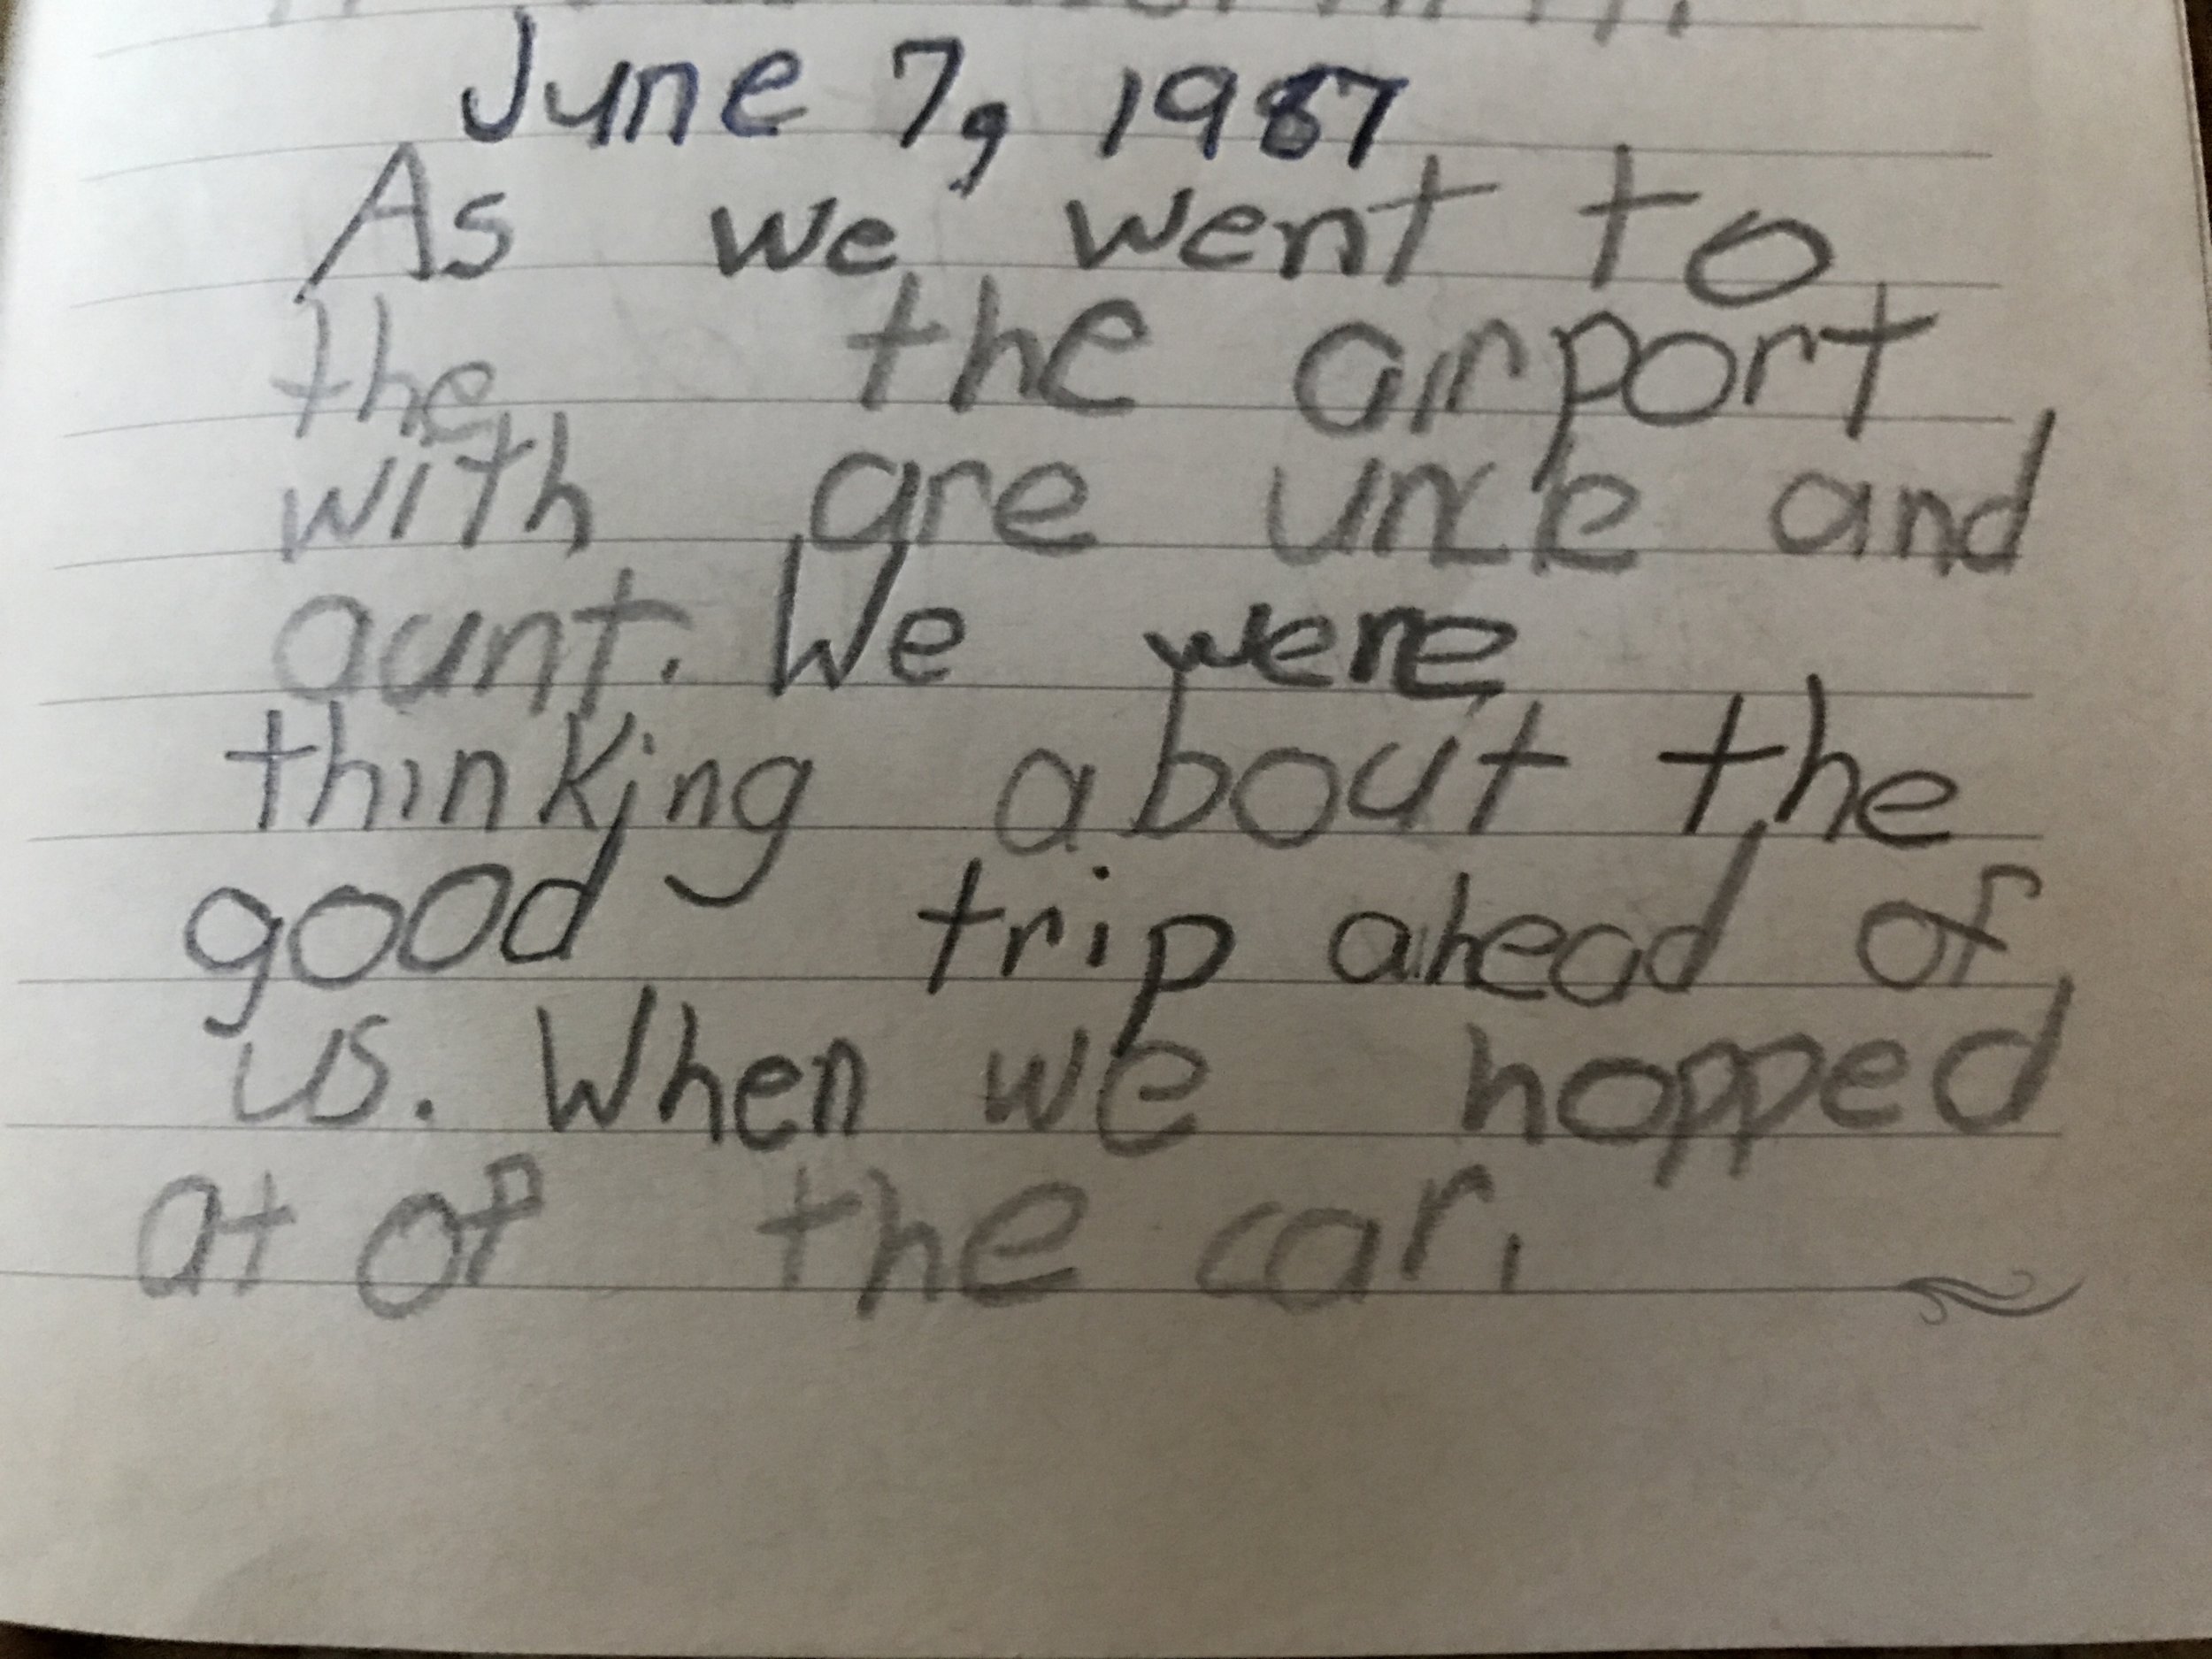 June 7, 1987
As we went to
the the airport
with are uncle and
aunt. We were
thinking about the
good trip ahead of
us. When we hopped
at of the car.